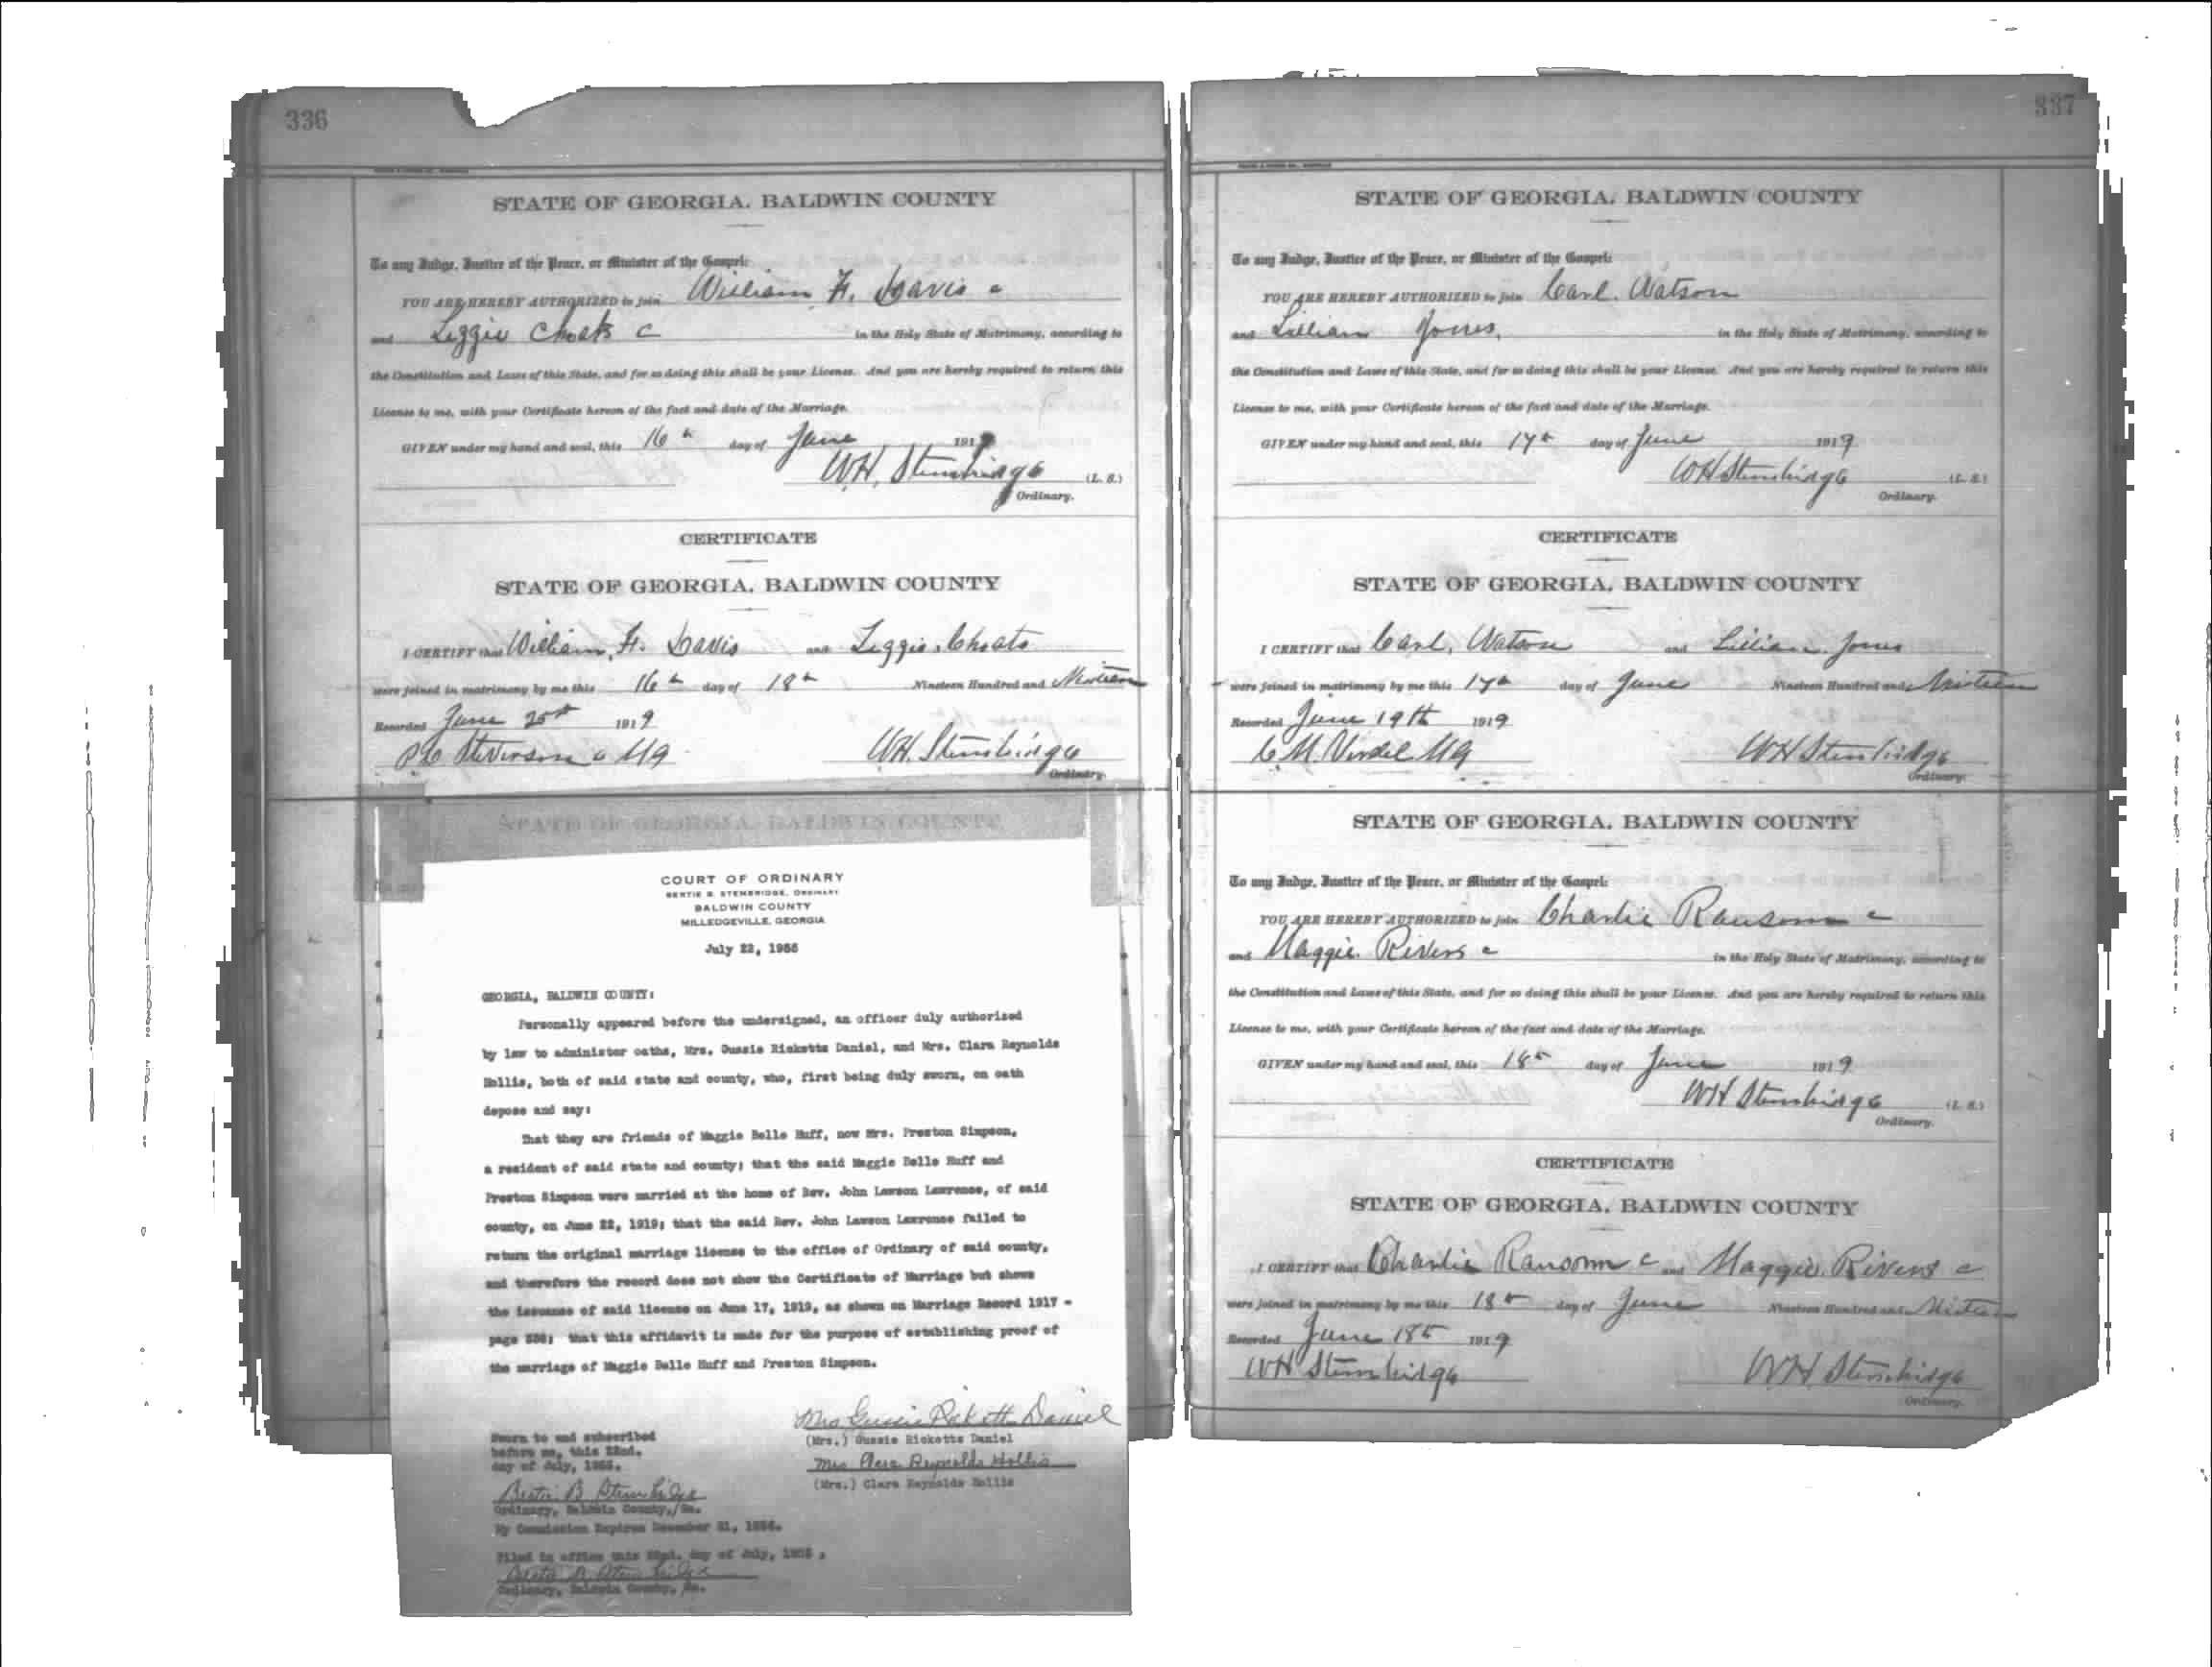 336
STATE OF GEORGIA. BALDWIN COUNTY
To any Judge, Justice of the Peace, or Minister of the Gospel:
YOU ARE HEREBY AUTHORIZED to join William H. Davis c
and Lizzie Choats c in the Holy State of Matrimony, according to
the Constitution and Laws of this State, and for so doing this shall be your License. And you are hereby required to return this
License to me, with your Certificate hereon of the fact and date of the Marriage.
GIVEN under my hand and seal, this 16th day of June 1919
W.H. Stembridge (L. S.)
Ordinary.
CERTIFICATE
STATE OF GEORGIA. BALDWIN COUNTY
I CERTIFY that William, H. Davis and Lizzie Choats
were joined in matrimony by me this 16th day of 18th Nineteen Hundred and Nineteen
Recorded June 25th 1919
Steverson c MG W.H. Stembridge
Ordinary.
STATE OF GEORGIA. BALDWIN COUNTY
COURT OF ORDINARY
BERTIE B. STEMBRIDGE, ORDINARY
BALDWIN COUNTY
MILLEDGEVILLE, GEORGIA
July 22, 1955
GEORGIA, BALDWIN COUNTY:
Personally appeared before the undersigned, an officer duly authorized
by law to administer oaths, Mrs. Gussie Ricketts Daniel, and Mrs. Clara Reynolds
Hollis, both of said state and county, who, first being duly sworn, on oath
depose and say:
That they are friends of Maggie Belle Huff, now Mrs. Preston Simpson,
a resident of said state and county; that the said Maggie Belle Huff and
Preston Simpson were married at the home of Rev. John Lawson Lawrence, of said
county, on June 22, 1919; that the said Rev. John Lawson Lawrence failed to
return the original marriage license to the office of Ordinary of said county,
and therefore the record does not show the Certificate of Marriage but shows
the issuance of said license on June 17, 1919, as shown on Marriage Record 1917 -
page 336; that this affidavit is made for the purpose of establishing proof of
the marriage of Maggie Belle Huff and Preston Simpson.
Mrs Gussie Rickett Daniel
(Mrs.) Gussie Ricketts Daniel
Mrs Clara Reynolds Hollis
(Mrs.) Clara Reynolds Hollis
Sworn to and subscribed
before me, this 22nd.
day of July, 1955.
Bertie B Stembridge
Ordinary, Baldwin County, Ga.
My Commission Expires December 31, 1956.
Filed in office this 22nd. day of July, 1955.
Bertie B Stembridge
Ordinary, Baldwin County, Ga.
337
STATE OF GEORGIA. BALDWIN COUNTY
To any Judge, Justice of the Peace, or Minister of the Gospel:
YOU ARE HEREBY AUTHORIZED to join Carl. Watson
and Lillian Jones. in the Holy State of Matrimony, according to
the Constitution and Laws of this State, and for so doing this shall be your License. And you are hereby required to return this
License to me, with your Certificate hereon of the fact and date of the Marriage.
GIVEN under my hand and seal, this 17th day of June 1919
WH Stembridge (L. S.)
Ordinary.
CERTIFICATE
STATE OF GEORGIA. BALDWIN COUNTY
I CERTIFY that Carl, Watson and Lillian Jones
were joined in matrimony by me this 17th day of June Nineteen Hundred and Nineteen
Recorded June 19th 1919
MG WH Stembridge
Ordinary.
STATE OF GEORGIA. BALDWIN COUNTY
To any Judge, Justice of the Peace, or Minister of the Gospel:
YOU ARE HEREBY AUTHORIZED to join Charlie Ransom c
and Maggie Rivers c in the Holy State of Matrimony, according to
the Constitution and Laws of this State, and for so doing this shall be your License. And you are hereby required to return this
License to me, with your Certificate hereon of the fact and date of the Marriage.
GIVEN under my hand and seal, this 18th day of June 1919
WH Stembridge (L. S.)
Ordinary.
CERTIFICATE
STATE OF GEORGIA. BALDWIN COUNTY
I CERTIFY that Charlie Ransom c and Maggie Rivers c
were joined in matrimony by me this 18th day of June Nineteen Hundred and Nineteen
Recorded June 18th 1919
WH Stembridge WH Stembridge
Ordinary.